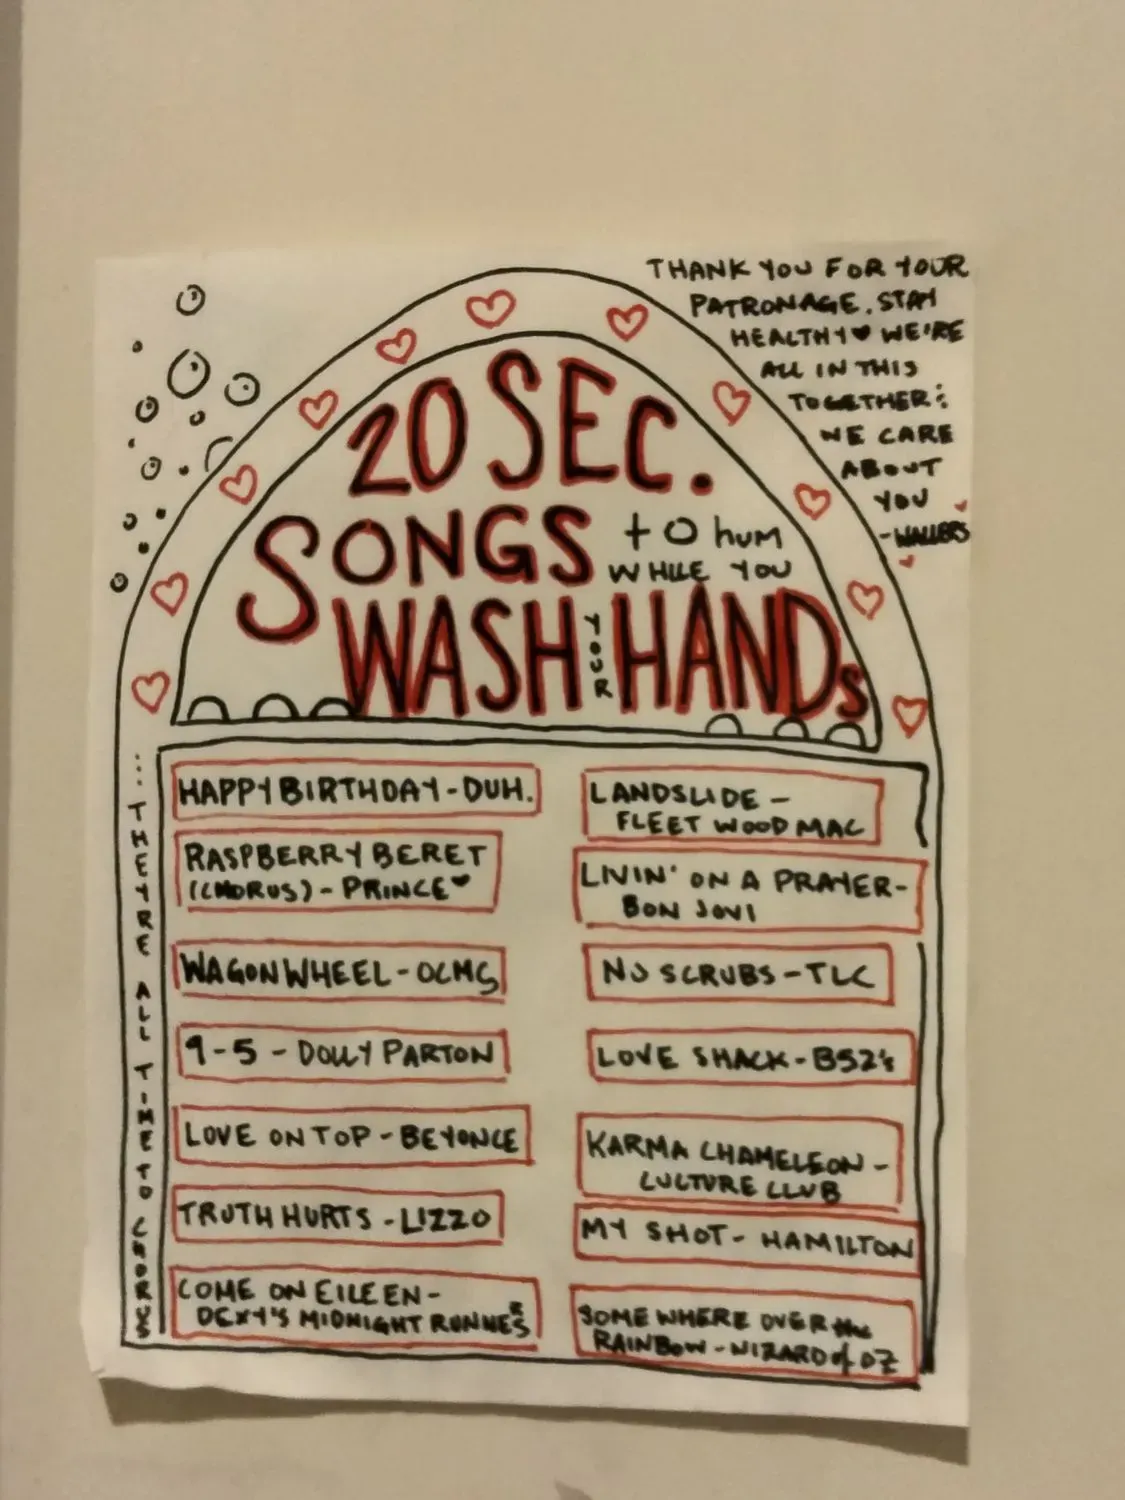 THANK YOU FOR YOUR
PATRONAGE. STAY
HEALTHY ♥ WE'RE
ALL IN THIS
TOGETHER:
WE CARE
ABOUT
YOU
20 SEC.
SONGS to hum
WHILE YOU
WASH YOUR HANDS
...THEY'RE ALL TIME TO CHORUS
HAPPY BIRTHDAY - DUH.
RASPBERRY BERET
(CHORUS) - PRINCE ♥
WAGON WHEEL - OCMS
9-5 - DOLLY PARTON
LOVE ON TOP - BEYONCE
TRUTH HURTS - LIZZO
COME ON EILEEN -
DEXY'S MIDNIGHT RUNNERS
LANDSLIDE -
FLEET WOOD MAC
LIVIN' ON A PRAYER -
BON JOVI
NO SCRUBS - TLC
LOVE SHACK - B52's
KARMA CHAMELEON -
CULTURE CLUB
MY SHOT - HAMILTON
SOME WHERE OVER the
RAINBOW - WIZARD of OZ